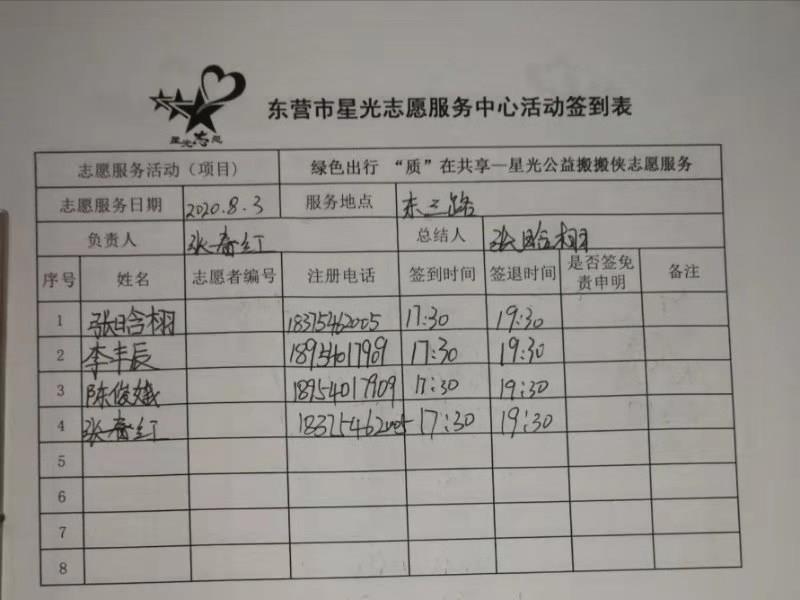 星光志愿
东营市星光志愿服务中心活动签到表
志愿服务活动（项目） 绿色出行 “质”在共享—星光公益搬搬侠志愿服务
志愿服务日期 2020.8.3 服务地点 东三路
负责人 张春红 总结人 张晗栩
序号 姓名 志愿者编号 注册电话 签到时间 签退时间 是否签免责申明 备注
1 张晗栩 18375462005 17:30 19:30
2 李丰辰 18954017909 17:30 19:30
3 陈俊娥 18954017909 17:30 19:30
4 张春红 18375462005 17:30 19:30
5
6
7
8